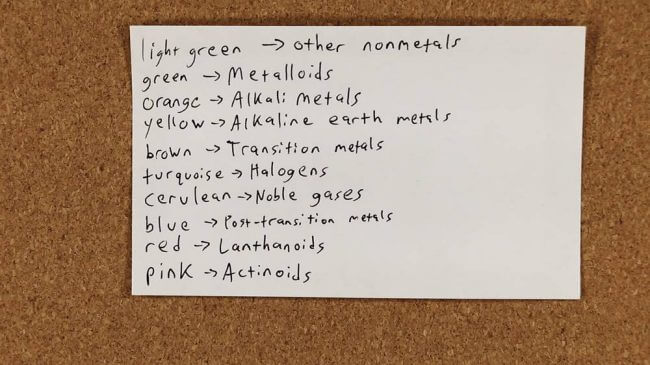 light green → other nonmetals
green → Metalloids
orange → Alkali metals
yellow → Alkaline earth metals
brown → Transition metals
turquoise → Halogens
cerulean → Noble gases
blue → Post-transition metals
red → Lanthanoids
pink → Actinoids